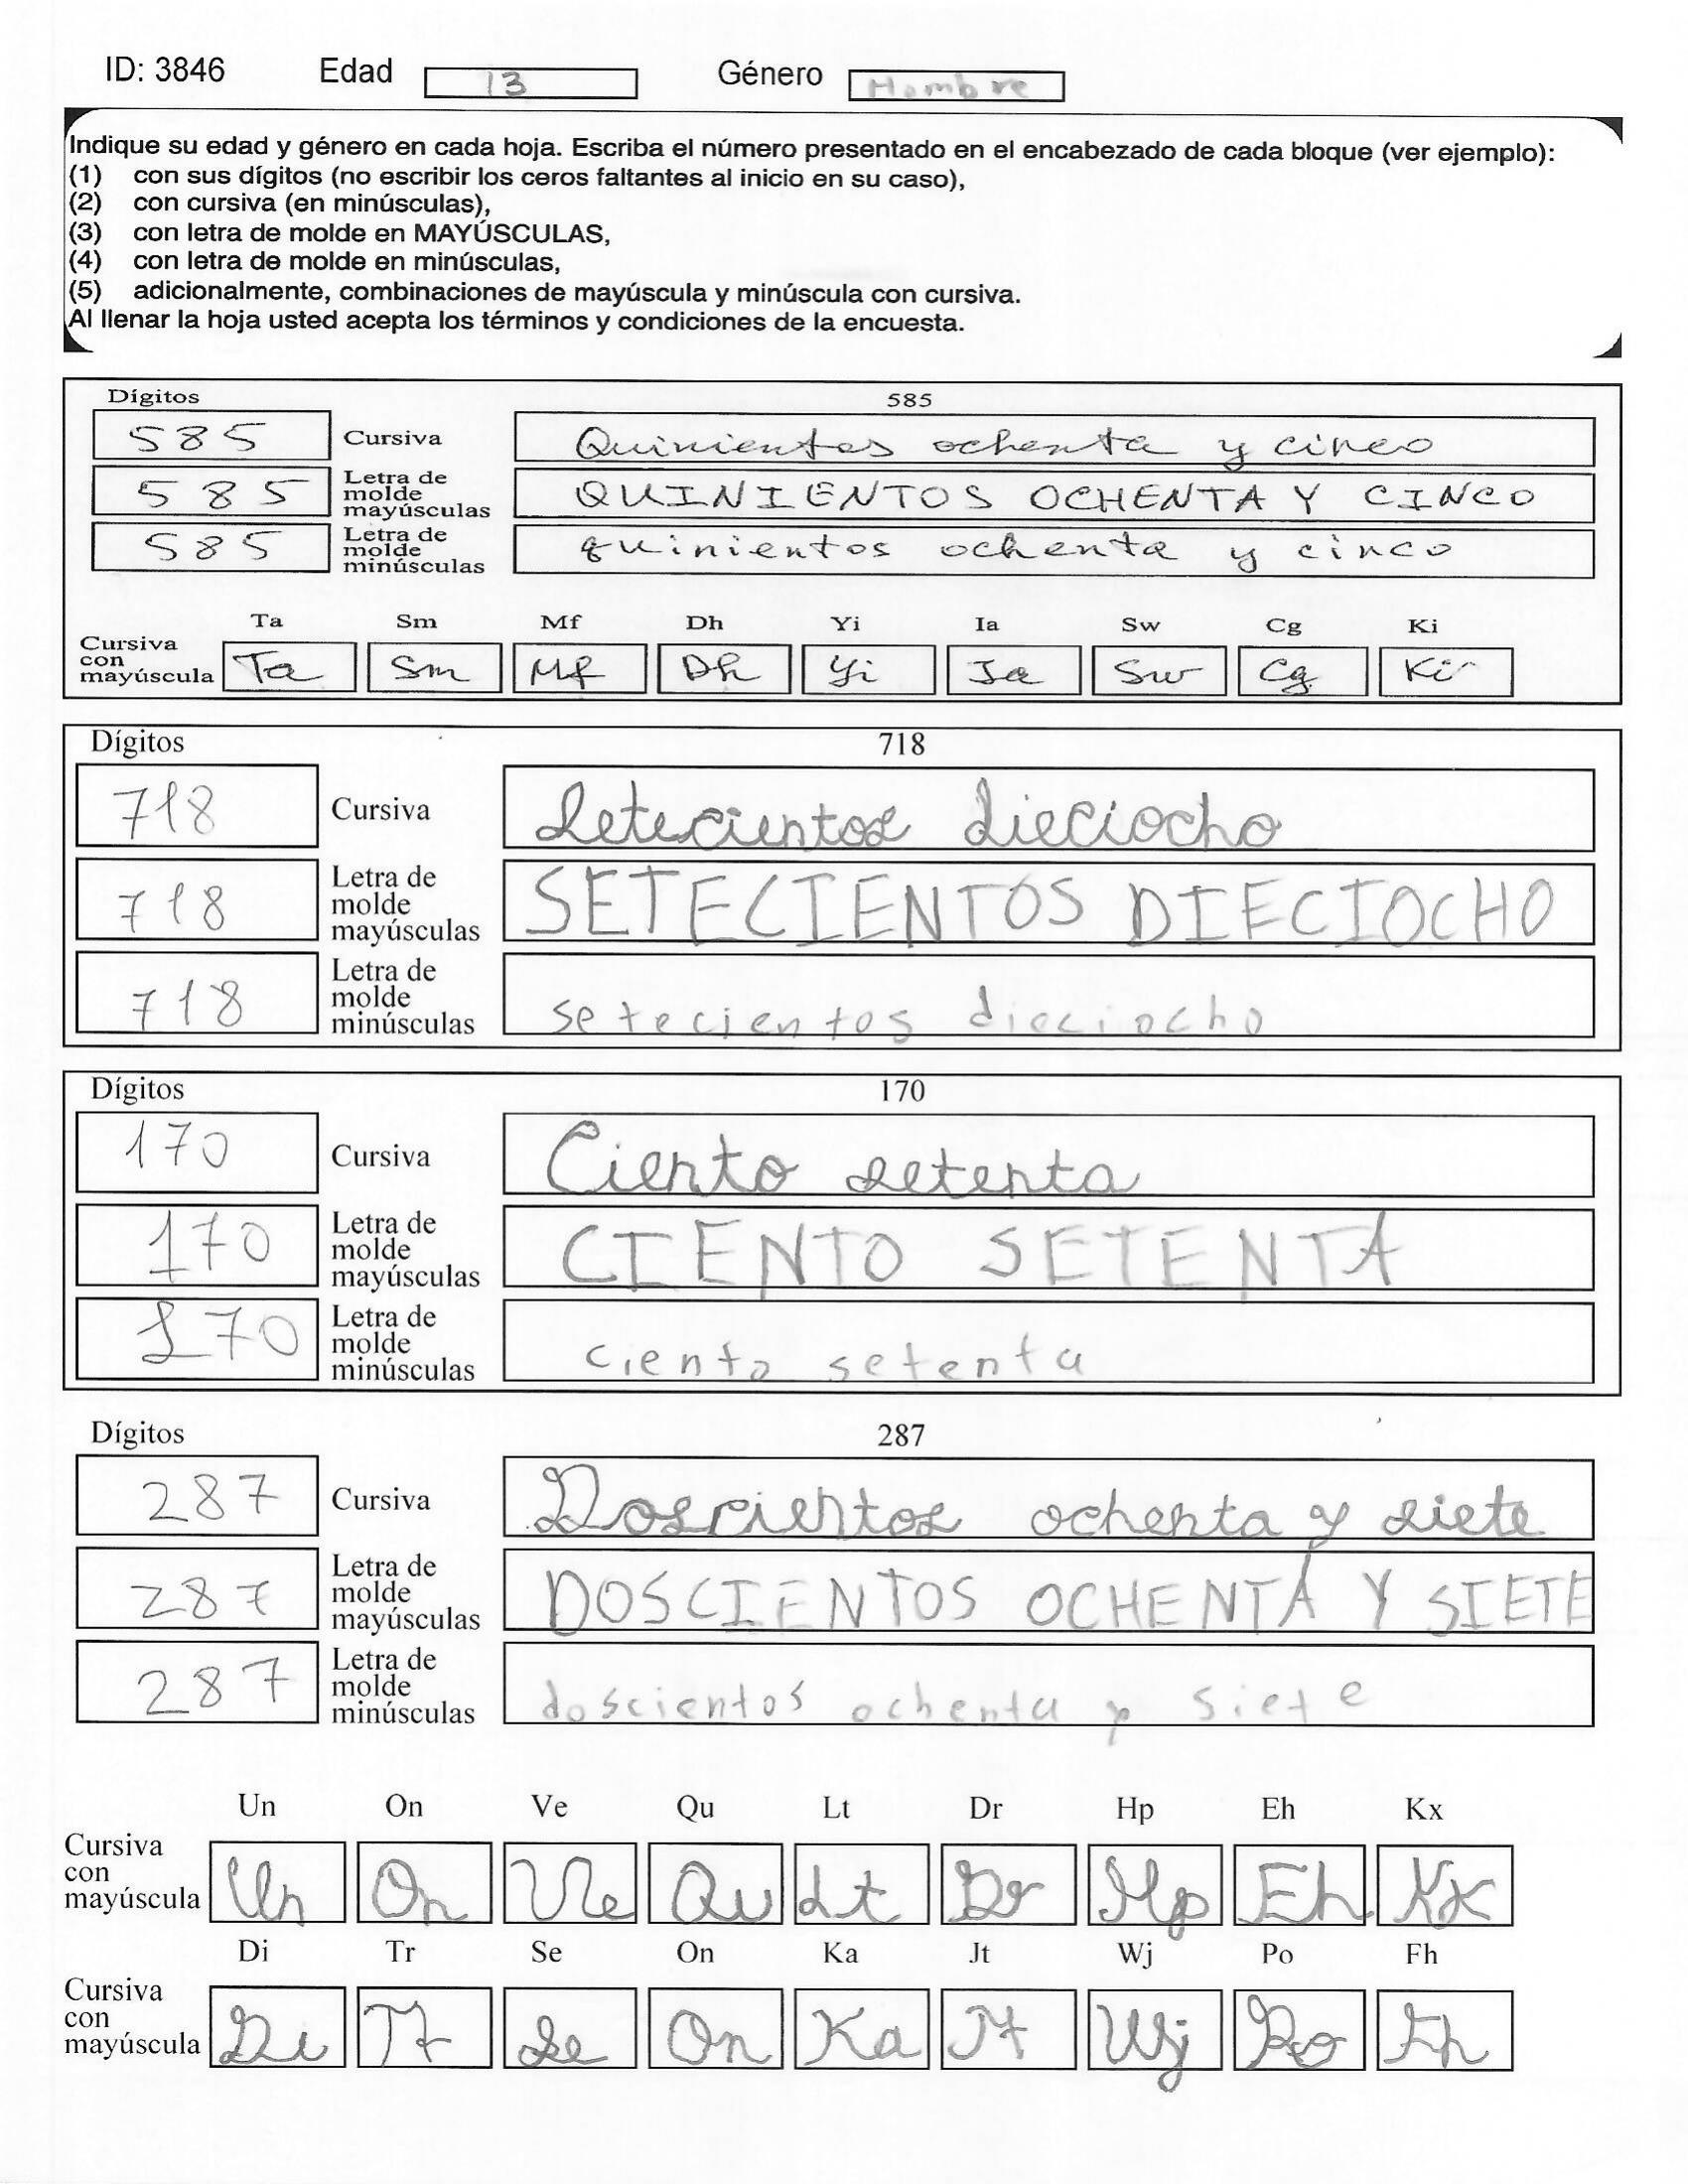 ID: 3846 Edad 13 Género Hombre
Indique su edad y género en cada hoja. Escriba el número presentado en el encabezado de cada bloque (ver ejemplo):
(1) con sus dígitos (no escribir los ceros faltantes al inicio en su caso),
(2) con cursiva (en minúsculas),
(3) con letra de molde en MAYÚSCULAS,
(4) con letra de molde en minúsculas,
(5) adicionalmente, combinaciones de mayúscula y minúscula con cursiva.
Al llenar la hoja usted acepta los términos y condiciones de la encuesta.
Dígitos 585
585 Cursiva Quinientos ochenta y cinco
585 Letra de molde mayúsculas QUINIENTOS OCHENTA Y CINCO
585 Letra de molde minúsculas quinientos ochenta y cinco
Ta Sm Mf Dh Yi Ia Sw Cg Ki
Cursiva con mayúscula Ta Sm Mf Dh Yi Ia Sw Cg Ki
Dígitos 718
718 Cursiva Setecientos dieciocho
718 Letra de molde mayúsculas SETECIENTOS DIECIOCHO
718 Letra de molde minúsculas setecientos dieciocho
Dígitos 170
170 Cursiva Ciento setenta
170 Letra de molde mayúsculas CIENTO SETENTA
170 Letra de molde minúsculas ciento setenta
Dígitos 287
287 Cursiva Doscientos ochenta y siete
287 Letra de molde mayúsculas DOSCIENTOS OCHENTA Y SIETE
287 Letra de molde minúsculas doscientos ochenta y siete
Un On Ve Qu Lt Dr Hp Eh Kx
Cursiva con mayúscula Un On Ve Qu Lt Dr Hp Eh Kx
Di Tr Se On Ka Jt Wj Po Fh
Cursiva con mayúscula Di Tr Se On Ka Jt Wj Po Fh